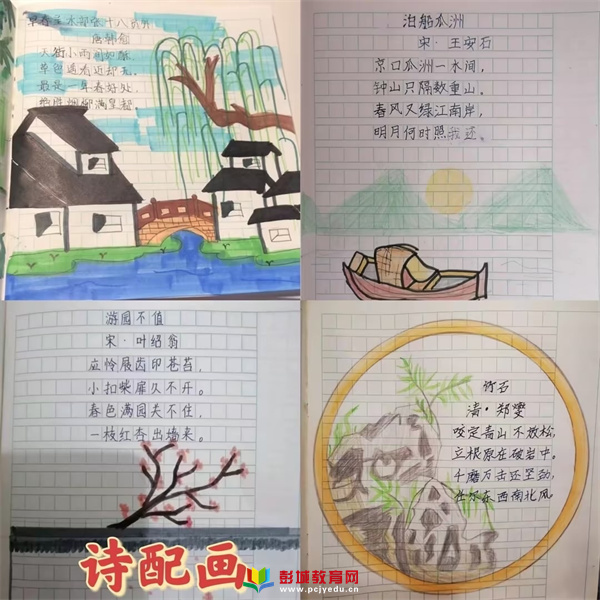 早春呈水部张十八员外
唐韩愈
天街小雨润如酥
草色遥看近却无
最是一年春好处
绝胜烟柳满皇都
泊船瓜洲
宋·王安石
京口瓜洲一水间,
钟山只隔数重山。
春风又绿江南岸,
明月何时照我还。
游园不值
宋·叶绍翁
应怜屐齿印苍苔,
小扣柴扉久不开。
春色满园关不住,
一枝红杏出墙来。
竹石
清·郑燮
咬定青山不放松,
立根原在破岩中。
千磨万击还坚劲,
任尔东西南北风
诗配画
彭城教育网
www.pcjyedu.cn